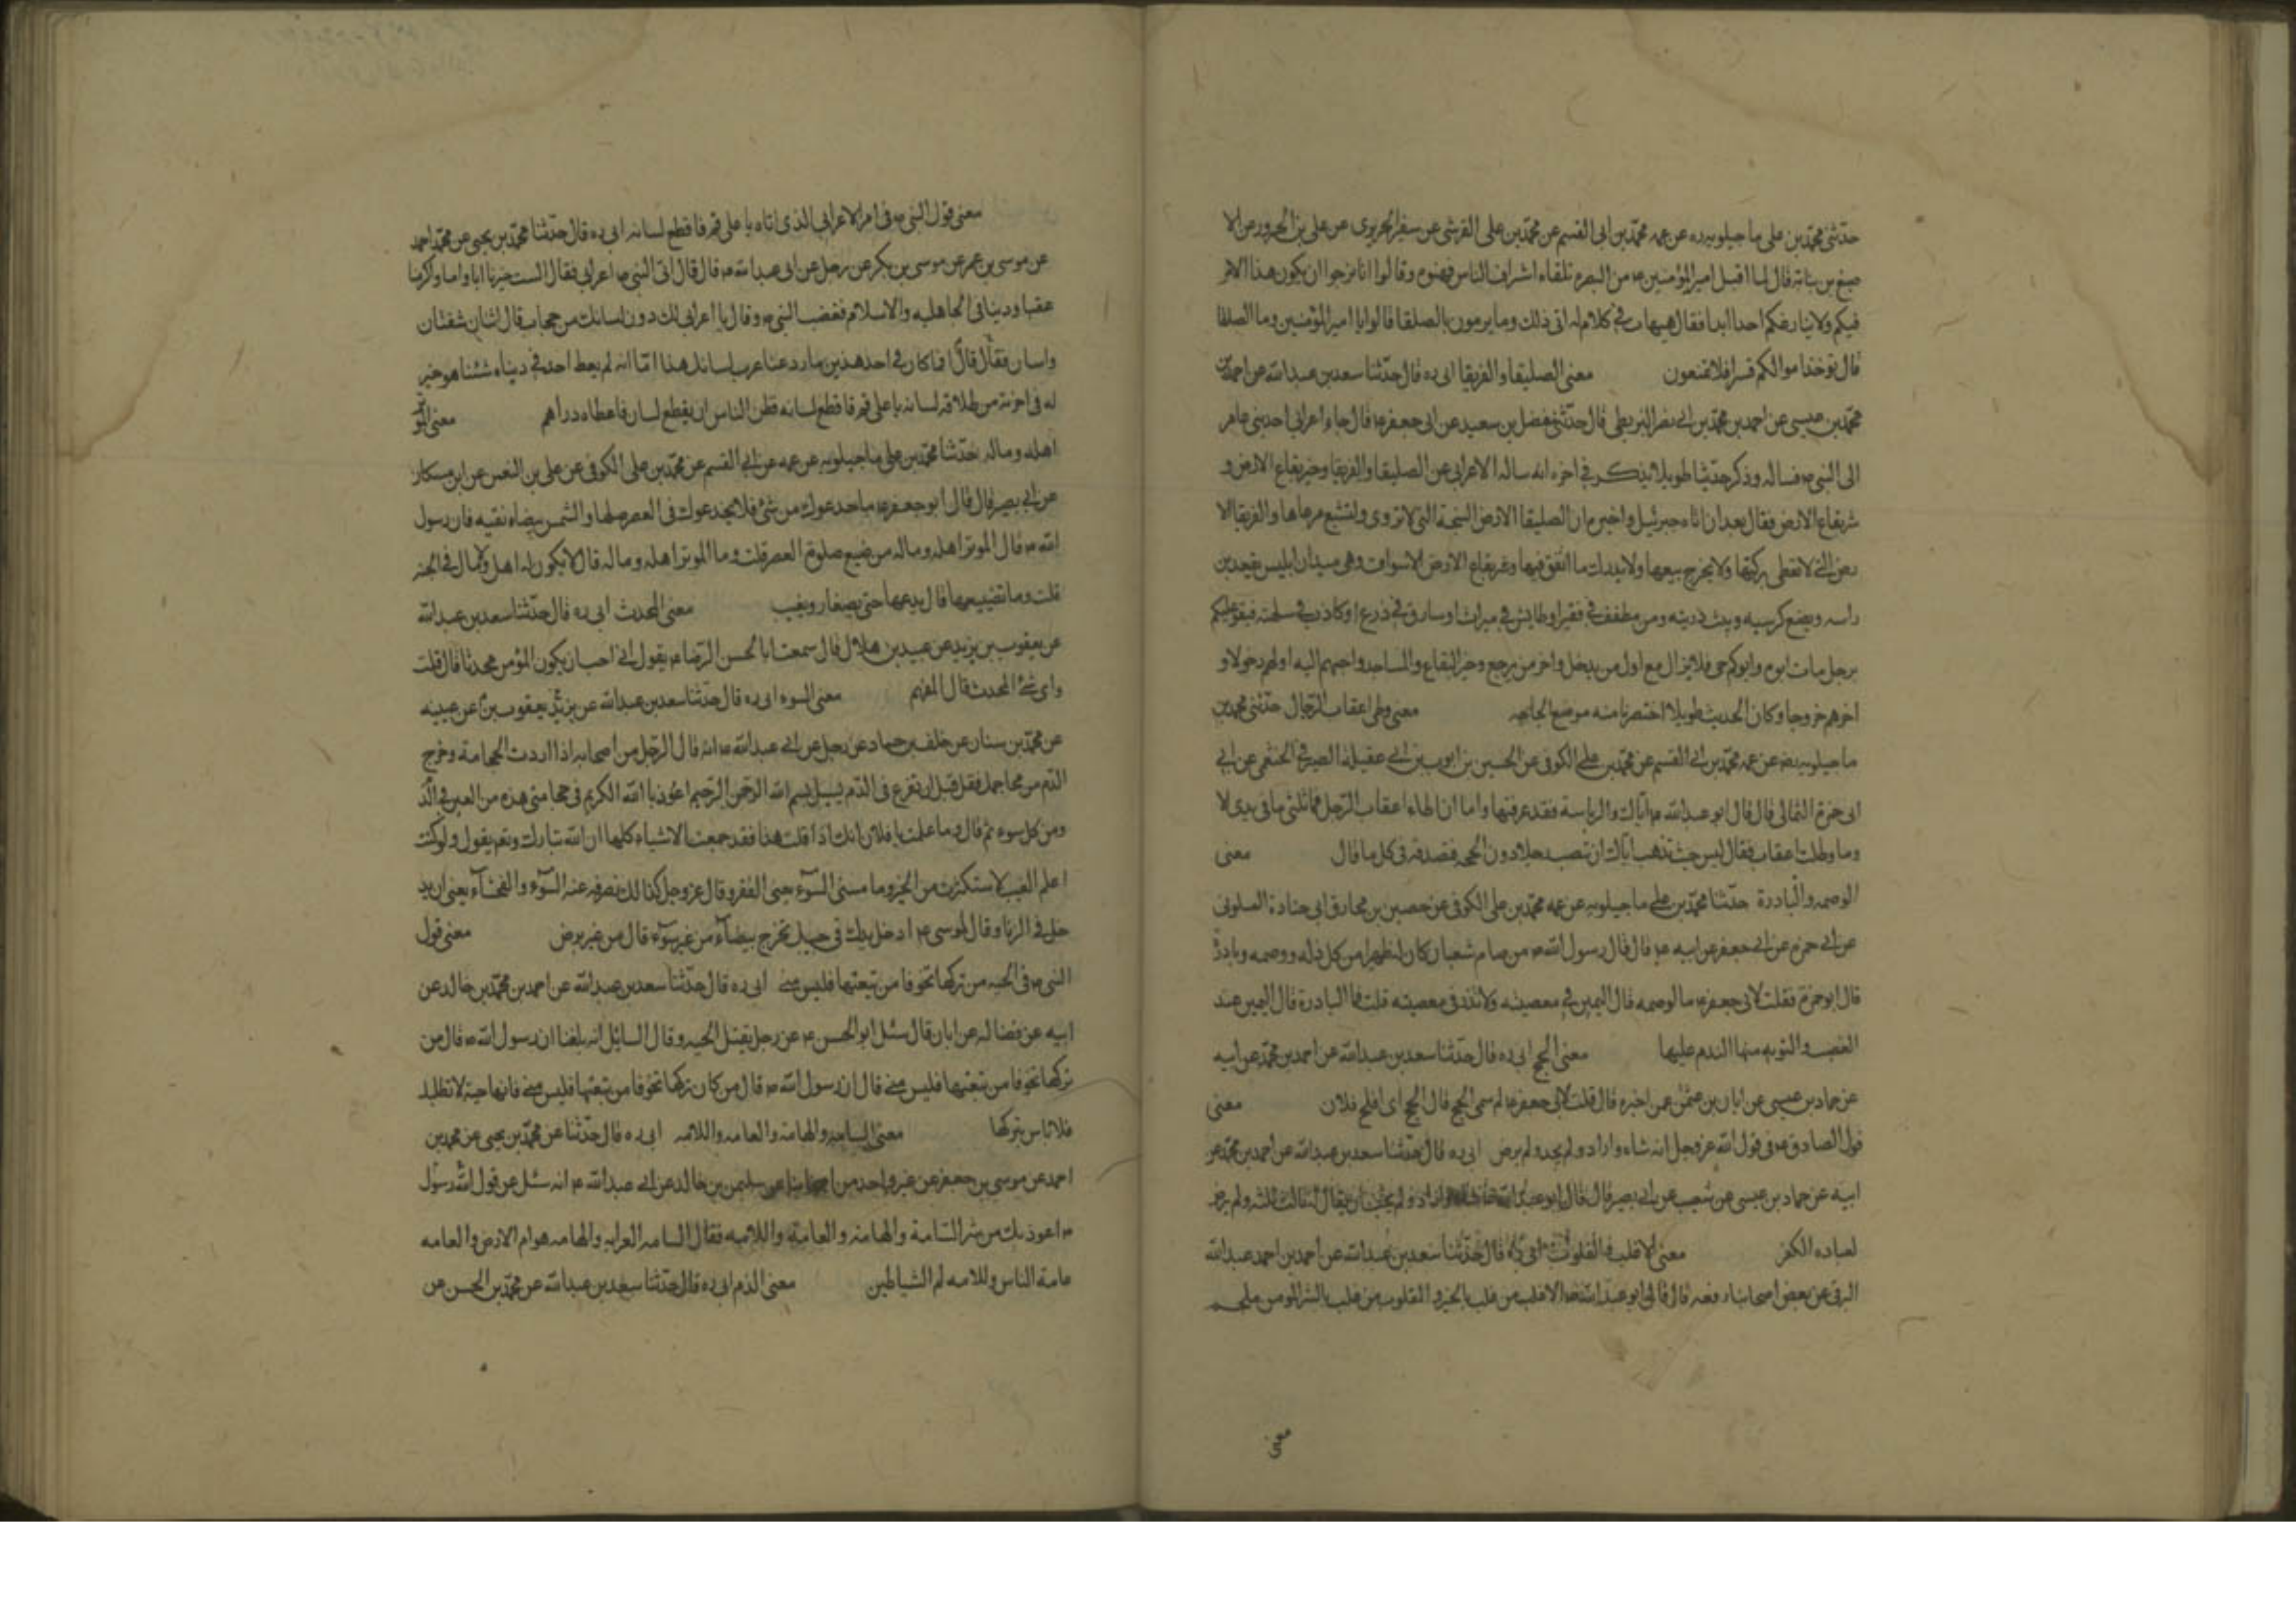 حدثنى محمد بن على ماجيلويه ره عن عمه محمد بن ابى القسم عن محمد بن على القرشى عن سفين الجريرى عن على بن الحزور عن الا
صبغ بن نباتة قال لما اقبل امير المؤمنين ع من البصرة تلقاه اشراف الناس فهنوه وقالوا انا نرجوا ان يكون هذا الامر
فيكم ولا ينازعكم احد ابدا فقال هيهات فى كلام له انى ذلك وما يرمون بالصلقا قالوا يا امير المؤمنين وما الصلقا
قال توخذ اموالكم قسرا فلا تمنعون معنى الصليقا والفريقا ابى ره قال حدثنا سعد بن عبد الله عن احمد بن
محمد بن عيسى عن احمد بن محمد بن ابى نصر البزنطى قال حدثنى مفضل بن سعيد عن ابى جعفر ع قال جاء اعرابى احد بنى عامر
الى النبى ص فساله وذكر حديثا طويلا يذكر فى اخره انه ساله الاعرابى عن الصليقا والفريقا وخير بقاع الارض و
شر بقاع الارض فقال بعد ان اتاه جبرئيل واخبره ان الصليقا الارض السبخة التى لا تروى ولا تشبع مرعاها والفريقا الا
رض التى لا تعطى بركتها ولا يخرج ينعها ولا يدرك ما انفق فيها وشر بقاع الارض الاسواق وهى ميدان ابليس يغدو بر
رايه ويضع كرسيه ويبث ذريته ومن مطفف فى قفيز او طايش فى ميزان او سارق فى ذرع او كاذب فى سلعته فيقو عليكم
برجل مات ابوه وابوكم حى فلا يزال مع اول من يدخل واخر من يرجع وخير البقاع والمساجد واحبهم اليه اولهم دخولا و
اخرهم خروجا وكان الحديث طويلا اختصرنا منه موضع الحاجه معنى وطى اعقاب الرجال حدثنى محمد بن
ماجيلويه رض عن عمه محمد بن ابى القسم عن محمد بن على الكوفى عن الحسين بن ايوب بن ابى عقيلة الصيرفى الخثعمى عن ابى
ابى حمزة الثمالى قال قال ابو عبد الله ع اياك والرياسة فقد عرفتها واما ان اطاء اعقاب الرجل فما ثلثى ما فى يدى لا
وما وطئت اعقاب فقال ليس حيث تذهب اياك ان تنصب رجلا دون الحجه فصدقه فى كل ما قال معنى
الوصمه والبادرة حدثنا محمد بن على ماجيلويه عن عمه محمد بن على الكوفى عن حصين بن مخارق ابى جنادة السلولى
عن ابى حمزه عن ابى جعفر عن ابيه ع قال قال رسول الله ص من صام شعبان كان له طهرا من كل زله ووصمه وبادرة
قال ابو حمزة فقلت لابى جعفر ع ما الوصمه قال اليمين فى معصيته ولا نذر فى معصيته قلت فما البادرة قال اليمين عند
الغضب والتوبه منها الندم عليها معنى الحج ابى ره قال حدثنا سعد بن عبد الله عن احمد بن محمد عن ابيه
عن حماد بن عيسى عن ابان بن عثمن عمن اخبره قال قلت لابى جعفر ع لم سمى الحج قال الحج اى افلح فلان معنى
قول الصادق ع فى قول الله عز وجل انه شاء واراد ولم يحب ولم يرض ابى ره قال حدثنا سعد بن عبد الله عن احمد بن محمد عن
ابيه عن حماد بن عيسى عن شعيب عن ابى بصير قال قال ابو عبد الله ع شاء واراد ولم يحب ان يقال له ثالث ثلثه ولم يرض
لعباده الكفر معنى الاغلب والمغلوب ابى ره قال حدثنا سعد بن عبد الله عن احمد بن احمد عبد الله
البرقى عن بعض اصحابنا رفعه قال قال لى ابو عبد الله ع الاغلب من غلب بالخير والمغلوب من غلب بالشر المومن ملجم
معنى
معنى قول النبى ص فى امر الاعرابى الذى اتاه يا على قم فاقطع لسانه ابى ره قال حدثنا محمد بن يحيى عن محمد احمد
عن موسى بن عمر عن موسى بن بكر عن رجل عن ابى عبد الله ع قال قال اتى النبى ص اعرابى فقال الست خيرنا ابا واما واكرمنا
عقبا ودينا فى الجاهليه والاسلام فغضب النبى ص وقال يا اعرابى لك دون لسانك من حجاب قال اثنان شفتان
واسنان فقال قال افما كان فى احد هذين ما رد عنا غرب لسانك هذا اما انه لم يعط احد فى دنياه شئنا هو خير
له فى اخرته من طلاقه لسانه يا على قم فاقطع لسانه فظن الناس ان يقطع لسانه فاعطاه دراهم معنى الموتر
اهله وماله حدثنا محمد بن على ماجيلويه عن عمه عن ابى القسم عن محمد بن على الكوفى عن على بن النعمن عن ابن مسكان
عن ابى بصير قال قال ابو جعفر ع ما خدعوك من شئ فلا يخدعوك فى العصر صلها والشمس بيضاء نقيه فان رسول
الله ص قال الموتر اهله وماله من ضيع صلوة العصر قلت وما الموتر اهله وماله قال لا يكون له اهل ولا مال فى الجنه
قلت وما تضييعها قال يدعها حتى يصفار ويغيب معنى المحدث ابى ره قال حدثنا سعد بن عبد الله
عن يعقوب بن يزيد عن عبيد بن هلال قال سمعت ابا الحسن الرضا ع يقول انى احب ان يكون المؤمن محدثا قال قلت
واى شئ المحدث قال المفهم معنى السوء ابى ره قال حدثنا سعد بن عبد الله عن يزيد يعقوب بن عن عبيه
عن محمد بن سنان عن خلف بن حماد عن رجل عن ابى عبد الله ع انه قال لرجل من اصحابه اذا اردت الحجامة وخرج
الدم من محاجمك فقل قبل ان تفرغ فى الدم يسيل بسم الله الرحمن الرحيم اعوذ با الله الكريم فى حجامتى هذه من العين فى الد
ومن كل سوء ثم قال وما علمت يا فلان انك اذا قلت هذا فقد جمعت الاشياء كلها ان الله تبارك وتعم يقول ولو كنت
اعلم الغيب لاستكثرت من الخير وما مسنى السوء يعنى الفقر وقال عز وجل كذالك نصرفه عنه السوء والفحشاء يعنى ان يد
خل فى الزنا وقال لموسى ع ادخل يدك فى جيبك تخرج بيضاء من غير سوء قال من غير برص معنى قول
النبى ص فى الحيه من تركها تخوفا من تبعتها فليس منى ابى ره قال حدثنا سعد بن عبد الله عن احمد بن محمد بن خالد عن
ابيه عن فضاله عن ابان قال سئل ابو الحسن ع عن رجل يقتل الحيه وقال السائل انه بلغنا ان رسول الله ص قال من
تركها تخوفا من تبعتها فليس منى قال ان رسول الله ص قال من كان تركها تخوفا من تبعتها فليس منى فانها حية لا تطلبك
فلا باس بتركها معنى السامه والهامه والعامه واللامه ابى ره قال حدثنا عن محمد بن يحيى عن محمد بن
احمد عن موسى بن جعفر عن غير واحد من اصحابنا عن سليمن بن خالد عن ابى عبد الله ع انه سئل عن قول الله رسول
ص اعوذ بك من شر السامة والهامة والعامة واللامه فقال السامه القرابه والهامه هوام الارض والعامه
عامة الناس وللامه لم الشياطين معنى الذم ابى ره قال حدثنا سعد بن عبد الله عن محمد بن الحسن عن